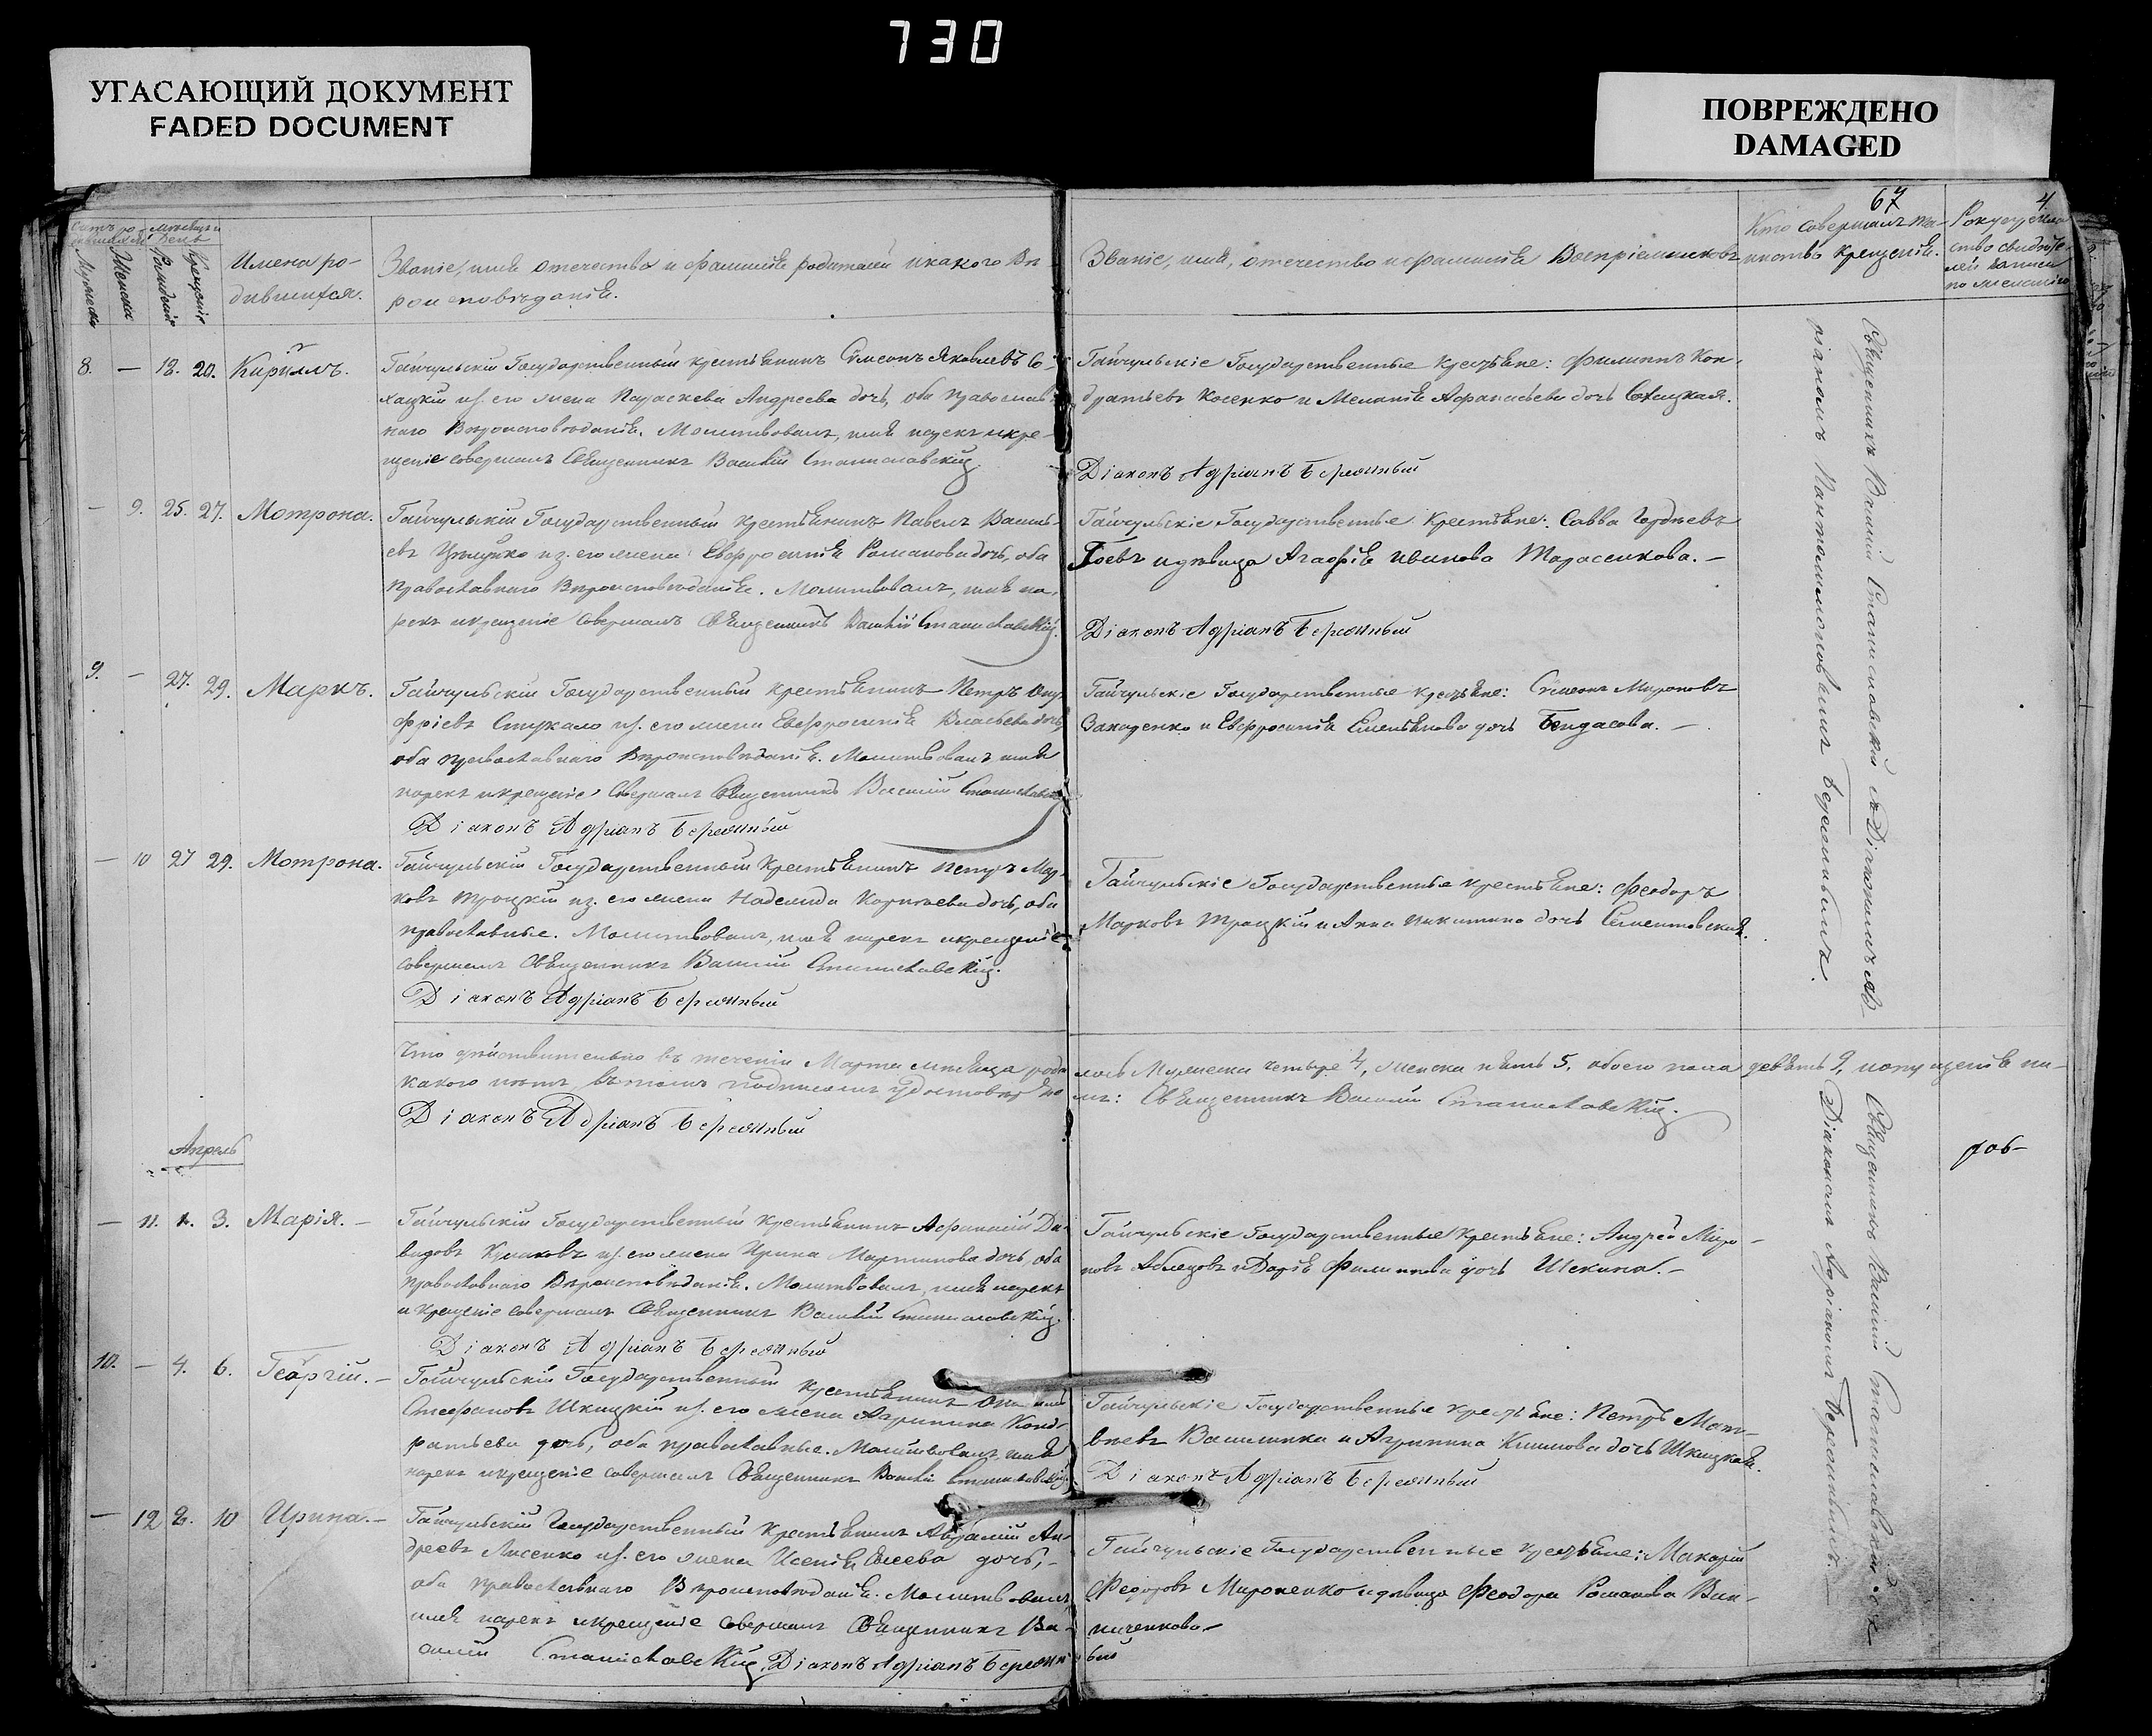 730
УГАСАЮЩИЙ ДОКУМЕНТ
FADED DOCUMENT
ПОВРЕЖДЕНО
DAMAGED
67
4
Мужеска
Женска
Рожденія
Крещенія
Имена ро-
дившихся.
Званіе, имя отечество и фамилія родителей и какого Вѣ-
роисповѣданія.
Званіе, имя, отечество и фамилія Воспріемниковъ
Кто совершалъ та-
инство крещенія.
Рокуприклад
ство свидѣте-
лей записи
по желанію
8. — 18. 20. Кириллъ.
Гайчульскій Государственный крестьянинъ Симеонъ Яковлевъ
его жена Параскева Андреева дочь, оба православ-
наго Вѣроисповѣданія. Молитвовалъ, имя нарекъ и кре-
щеніе совершалъ Священникъ Василій Станиславскій.
Гайчульскіе Государственные Крестьяне: Филиппъ Кон-
дратьевъ Косенко и Меланія Афанасьева дочь
Діаконъ Адріанъ Бережный
— 9. 25. 27. Мотрона.
Гайчульскій Государственный крестьянинъ Павелъ Василь-
евъ из. его жена Евфросинія Романова дочь, оба
Православнаго Вѣроисповѣданія. Молитвовалъ, имя на-
рекъ и крещеніе совершалъ Священникъ Василій Станиславскій.
Гайчульскіе Государственные Крестьяне: Савва Гордѣевъ
Гоевъ и дѣвица Агафія Иванова Тарасенкова. —
Діаконъ Адріанъ Бережный
9. — 27. 29. Маркъ.
Гайчульскій Государственный крестьянинъ Петръ Ону-
фріевъ Стукало из. его жена Евфросинія Власьева дочь,
оба православнаго Вѣроисповѣданія. Молитвовалъ имя
нарекъ и крещеніе Совершалъ Священникъ Василій Станиславскій
Діаконъ Адріанъ Бережный
Гайчульскіе Государственные крестьяне: Симеонъ Мироновъ
и Евфросинія Емельянова дочь Бендасова. —
— 10 27 29. Мотрона.
Гайчульскій Государственный Крестьянинъ Петръ Мар-
ковъ Троцкій из. его жена Надежда Корнѣева дочь, оба
православные. Молитвовалъ, имя нарекъ и крещеніе
совершалъ Священникъ Василій Станиславскій.
Діаконъ Адріанъ Бережный
Гайчульскіе Государственные крестьяне: Феодоръ
Марковъ Троцкій и Анна Никитина дочь Сементовская.
Священникъ Василій Станиславскій съ Діакономъ Ад-
ріаномъ Пантелимоновымъ Бережнымъ.
Что дѣйствительно въ теченіи Марта мѣсяца роди лось Мужеска четыре 4, женска пять 5, обоего пола девять 9,
какого нѣтъ, въ томъ подписомъ удостовѣряю
Священникъ Василій Станиславскій.
Діаконъ Адріанъ Бережный
Апрель
— 11. 1. 3. Марія. —
Гайчульскій Государственный крестьянинъ Афанасій Да-
видовъ из. его жена Ирина Мартинова дочь, оба
Православнаго Вѣроисповѣданія. Молитвовалъ, имя нарекъ
и крещеніе совершалъ Священникъ Василій Станиславскій.
Діаконъ Адріанъ Бережный
Гайчульскіе Государственные Крестьяне: Андрей Миро-
новъ и Дарія Филиппова дочь Шекина. —
10. — 4. 6. Георгій. —
Гайчульскій Государственный крестьянинъ
Стефановъ Шкицкій из. его жена Агрипина Конд-
ратьева дочь, оба православные. Молитвовалъ, имя
нарекъ и крещеніе совершалъ Священникъ Василій Станиславскій
Гайчульскіе Государственные крестьяне: Петръ Мат-
вѣевъ Василинка и Агрипина Климова дочь Шкицкая.
Діаконъ Адріанъ Бережный
— 12 8. 10 Ирина. —
Гайчульскій Государственный Крестьянинъ Авраамій Ан-
дреевъ Лисенко из. его жена Ксенія Елисеева дочь, —
оба православнаго Вѣроисповѣданія. Молитвовалъ,
имя нарекъ и крещеніе совершалъ Священникъ Ва-
силій Станиславскій. Діаконъ Адріанъ Бережный
Гайчульскіе Государственные крестьяне: Макарій
Федоровъ Мироненко и дѣвица Феодора Романова Вин-
ниченкова —
Священникъ Василій Станиславскій съ
Діакономъ Адріаномъ Бережнымъ.